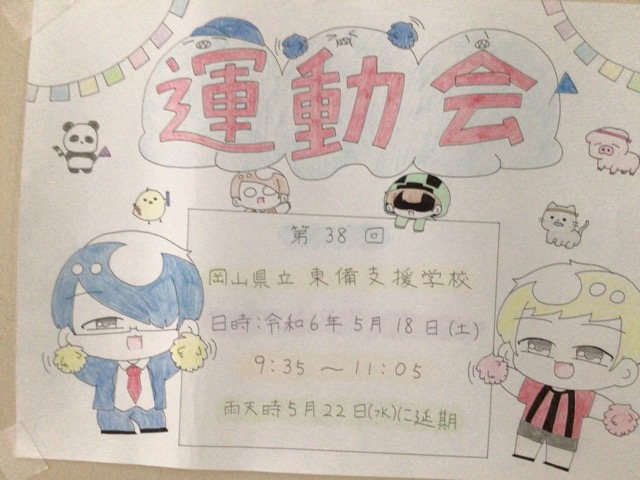 運動会
第38回
岡山県立東備支援学校
日時:令和6年5月18日(土)
9:35〜11:05
雨天時5月22日(水)に延期